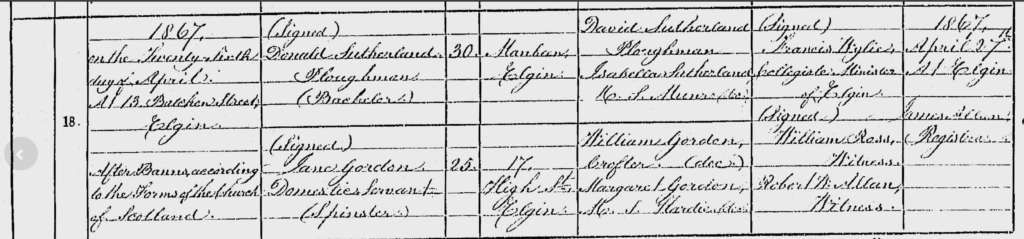 18.
1867,
on the Twenty sixth
day of April.
At 13. Batchen Street,
Elgin.
After Banns, according
to the Forms of the Church
of Scotland.
(Signed)
Donald Sutherland.
Ploughman.
(Bachelor.)
(Signed)
Jane Gordon.
Domestic Servant
(Spinster.)
30.
25.
Manbean,
Elgin.
17.
High St.
Elgin.
David Sutherland
Ploughman
Isabella Sutherland
M. S. Munro (dec.)
William Gordon,
Crofter (dec.)
Margaret Gordon,
M. S. Hardie (dec.)
(Signed)
Francis Wylie,
Collegiate Minister
of Elgin.
(Signed)
William Ross,
Witness.
Robert W. Allan,
Witness.
1867,
April 27th
At Elgin
James Allan,
Registrar